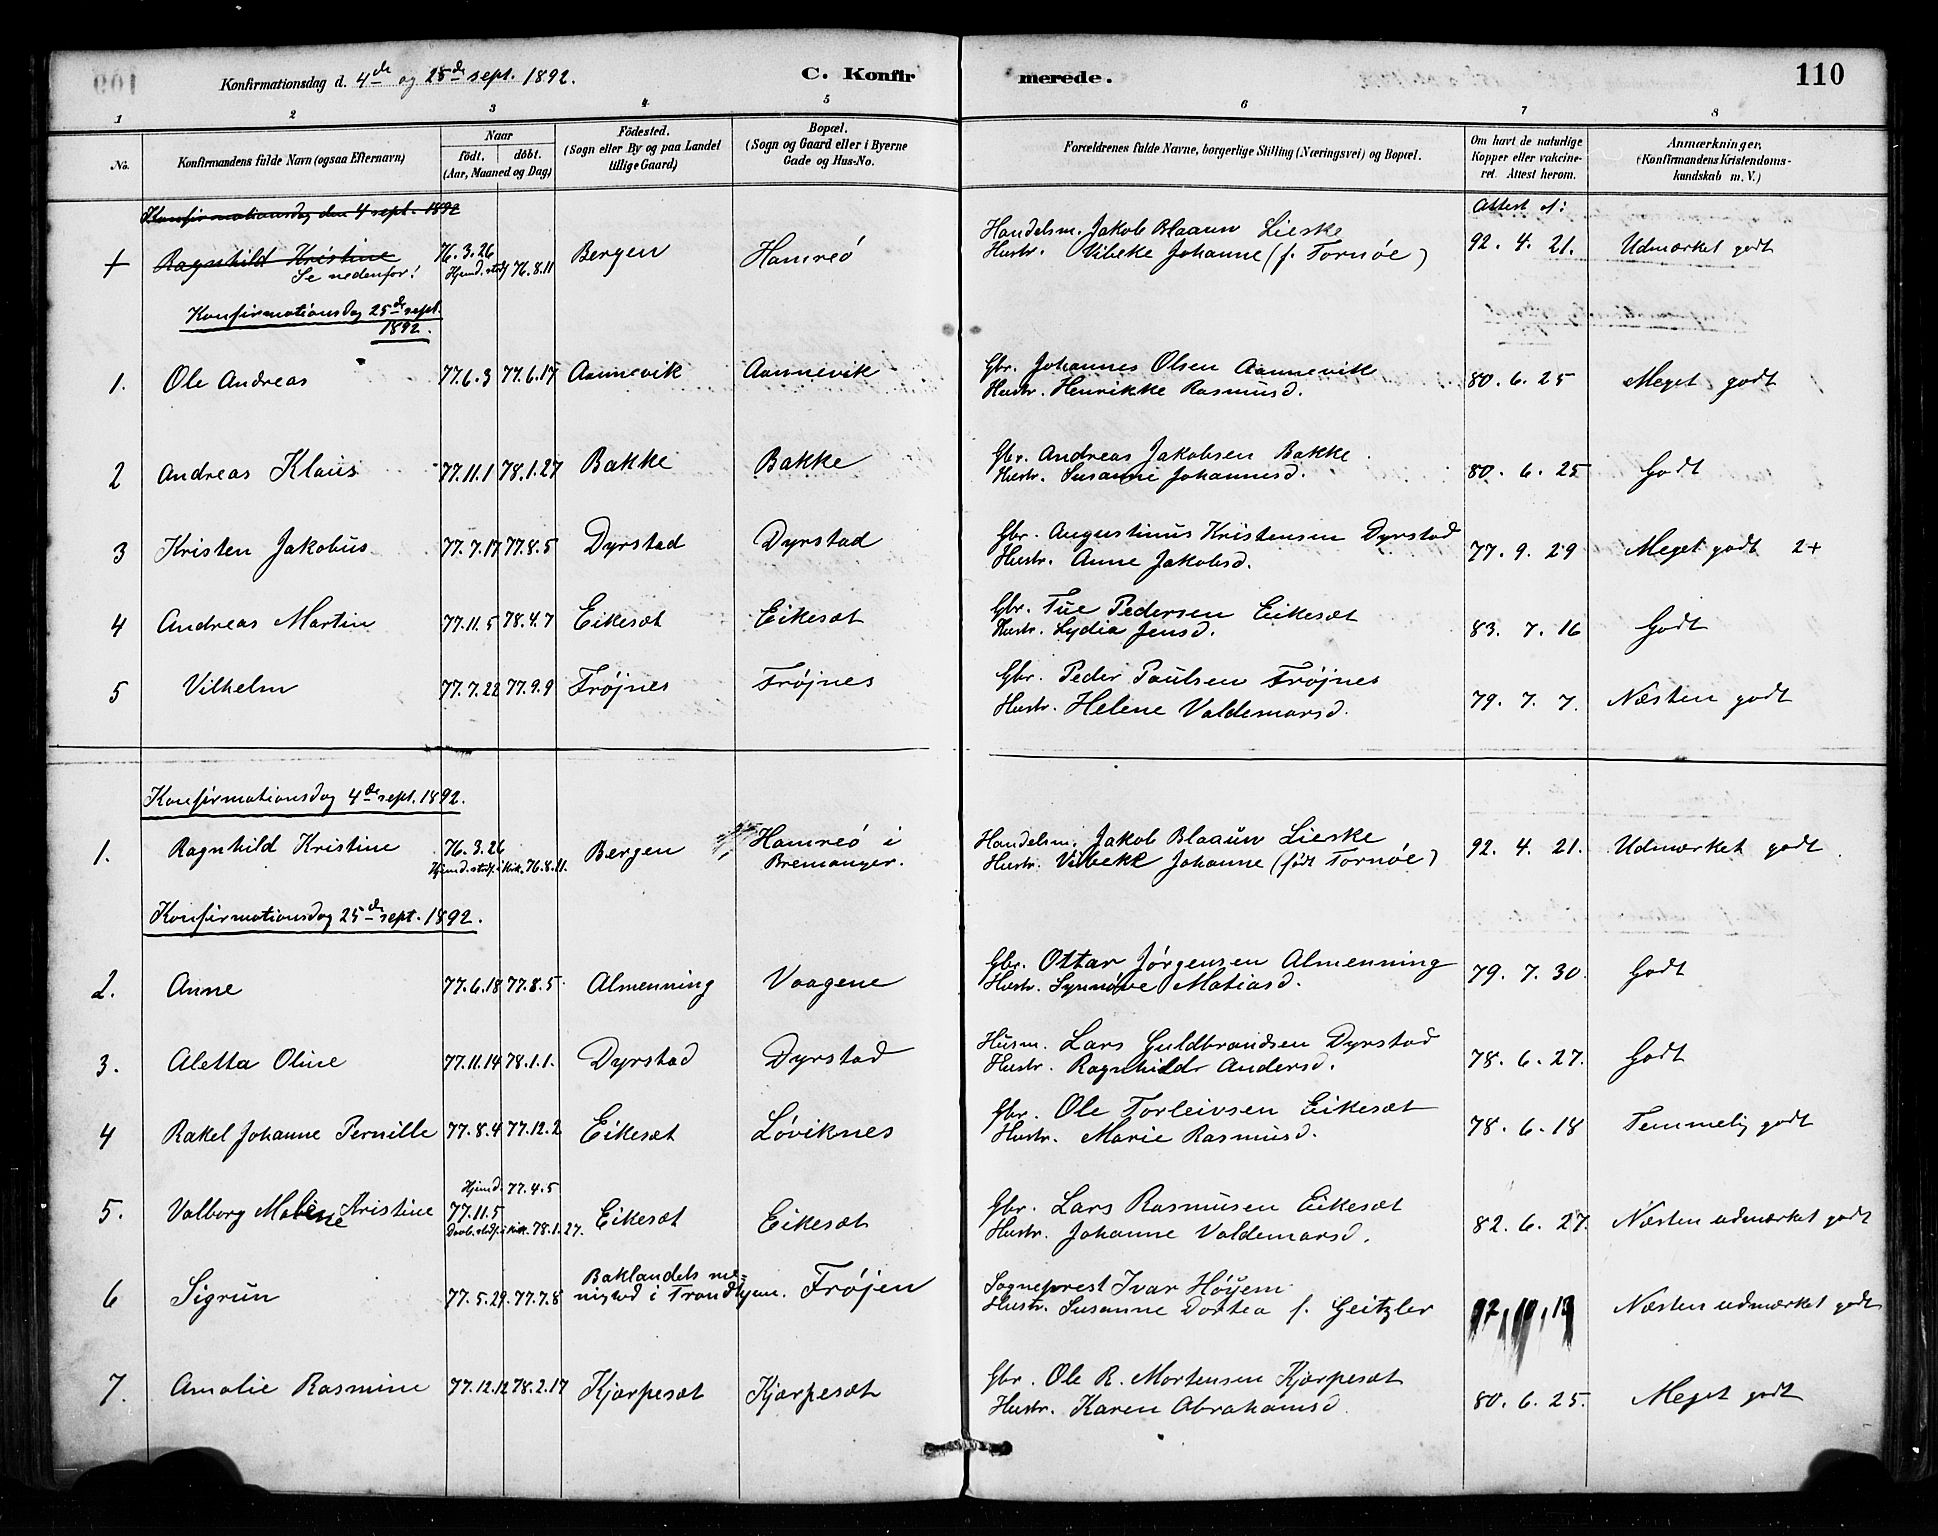 Konfirmationsdag d. 4de og 25de sept. 1892.
C. Konfirmerede.
110
1 2 3 4 5 6 7 8
No.
Konfirmandens fulde Navn (ogsaa Efternavn)
Naar
födt. döbt.
(Aar, Maaned og Dag)
Födested.
(Sogn eller By og paa Landet
tillige Gaard)
Bopæl.
(Sogn og Gaard eller i Byerne
Gade og Hus-No.
Forældrenes fulde Navne, borgerlige Stilling (Næringsvei) og Bopæl.
Om havt de naturlige
Kopper eller vakcine-
ret. Attest herom.
Anmærkninger.
(Konfirmandens Kristendoms-
kundskab m. V.)
Konfirmationsdag den 4 sept. 1892
Attest af:
1 Ragnhild Kristine 76.3.26 Bergen Hamreö Handelsm. Jakob Blaauw Lieske 92.4.21. Udmærket godt
Se nedenfor! Hjemd. stadf. 76.8.11 Hustr. Vibeke Johanne (f. Tornøe)
Konfirmationsdag 25de sept.
1892.
1. Ole Andreas 77.6.3 77.6.17 Aannevik Aannevik Gbr. Johannes Olsen Aannevik 80.6.25 Meget godt
Hustr. Henrikke Rasmusd.
2 Andreas Klaus 77.11.1 78.1.27 Bakke Bakke Gbr. Andreas Jakobsen Bakke 80.6.25 Godt
Hustr. Susanne Johannesd.
3 Kristen Jakobus 77.7.17 77.8.5 Dyrstad Dyrstad Gbr. Augustinus Kristensen Dyrstad 77.9.29 Meget godt 2+
Hustr. Anne Jakobsd.
4 Andreas Martin 77.11.5 78.4.7 Eikesæt Eikesæt Gbr. Tue Pedersen Eikesæt 83.7.16 Godt
Hustr. Lydia Jensd.
5 Vilhelm 77.7.22 77.9.9 Frøjnes Frøjnes Gbr. Peder Paulsen Frøjnes 79.7.7. Næsten godt
Hustr. Helene Valdemarsd.
Konfirmationsdag 4de sept. 1892.
1. Ragnhild Kristine 76.3.26 Bergen Hamreö i Handelsm. Jakob Blaauw Lieske 92.4.21. Udmærket godt.
Hjemd. stadf. i kirk. 76.8.11. Bremanger. Hustr. Vibeke Johanne (født Tornøe)
Konfirmationsdag 25de sept. 1892.
2. Anne 77.6.18 77.8.5. Almenning Vaagene Gbr. Ottar Jørgensen Almenning 79.7.30. Godt
Hustr. Synnøve Matiasd.
3. Aletta Oline 77.11.14 78.1.1. Dyrstad Dyrstad Husm. Lars Guldbrandsen Dyrstad 78.6.27. Godt
Hustr. Ragnhild Andersd.
4 Rakel Johanne Pernille 77.8.4 77.12.2 Eikesæt Løviknes Gbr. Ole Torleivsen Eikesæt 78.6.18 Temmelig godt
Hustr. Marie Rasmusd.
Hjemd. 77.4.5
5. Valborg Malene Kristine 77.11.5 Eikesæt Eikesæt Gbr. Lars Rasmusen Eikesæt 82.6.27. Næsten udmærket godt
Daab. stadf. i kirk. 78.1.27. Hustr. Johanne Valdemarsd.
6 Sigrun 77.5.29 77.7.8 Baklandets me- Frøjen Sogneprest Ivar Höyem 92,10,13 Næsten udmærket godt
nighed i Trondhjem. Hustr. Susanne Dortea f. Geitzler
7. Amalie Rasmine 77.12.12 78.2.17 Kjærpesæt Kjærpesæt Gbr. Ole R. Mortensen Kjærpesæt 80.6.25. Meget godt
Hustr. Karen Abrahamsd.